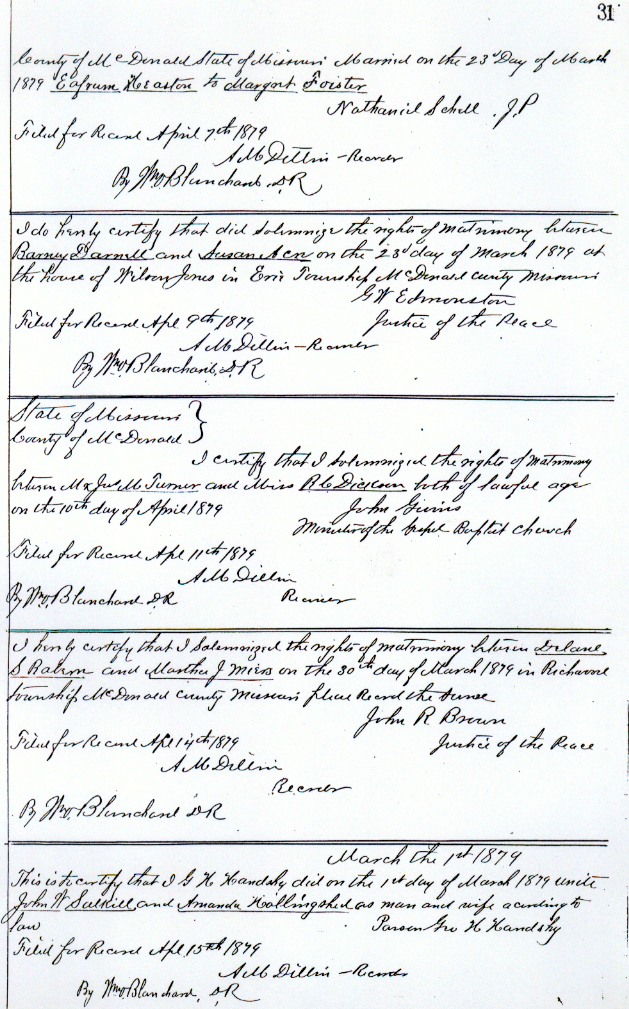 31
County of McDonald State of Missouri Married on the 23d Day of March
1879 Eafrum Heaston to Margort Foister
Nathaniel Schell . J.P
Filed for Record April 7th 1879
A M Dillin - Recorder
By Wm Blanchard, D.R
I do herely certify that did Solemnize the rights of matrimony between
Barney Darnell and Susan Acn on the 23d day of March 1879 at
the house of Wilson Jones in Erie Township McDonald county Missouri
G W Edmonston
Filed for Record Apl 9th 1879 Justice of the Peace
A M Dillin - Recorder
By Wm Blanchard, D.R
State of Missouri }
County of McDonald }
I certify that I solemnized the rights of matrimony
between Mr Jas M Turner and Miss R C Dickson both of lawful age
on the 10th day of April 1879 John
Minister of the Gospel Baptist Church
Filed for Record Apl 11th 1879
A M Dillin
By Wm Blanchard D.R Recorder
I herely certify that I Solemnized the rights of matrimony between Delane
S and Martha J Miers on the 30th day of March 1879 in Richwood
township McDonald county Missouri please Record the Same
John R Brown
Filed for Record Apl 14th 1879 Justice of the Peace
A M Dillin
Recorder
By Wm Blanchard D.R
March the 1st 1879
This is to certify that I G H Handshy did on the 1st day of March 1879 unite
John W Salkill and Amanda Hollingshed as man and wife acording to
law Parson Geo H Handshy
Filed for Record Apl 15th 1879
A M Dillin - Recorder
By Wm Blanchard, D.R